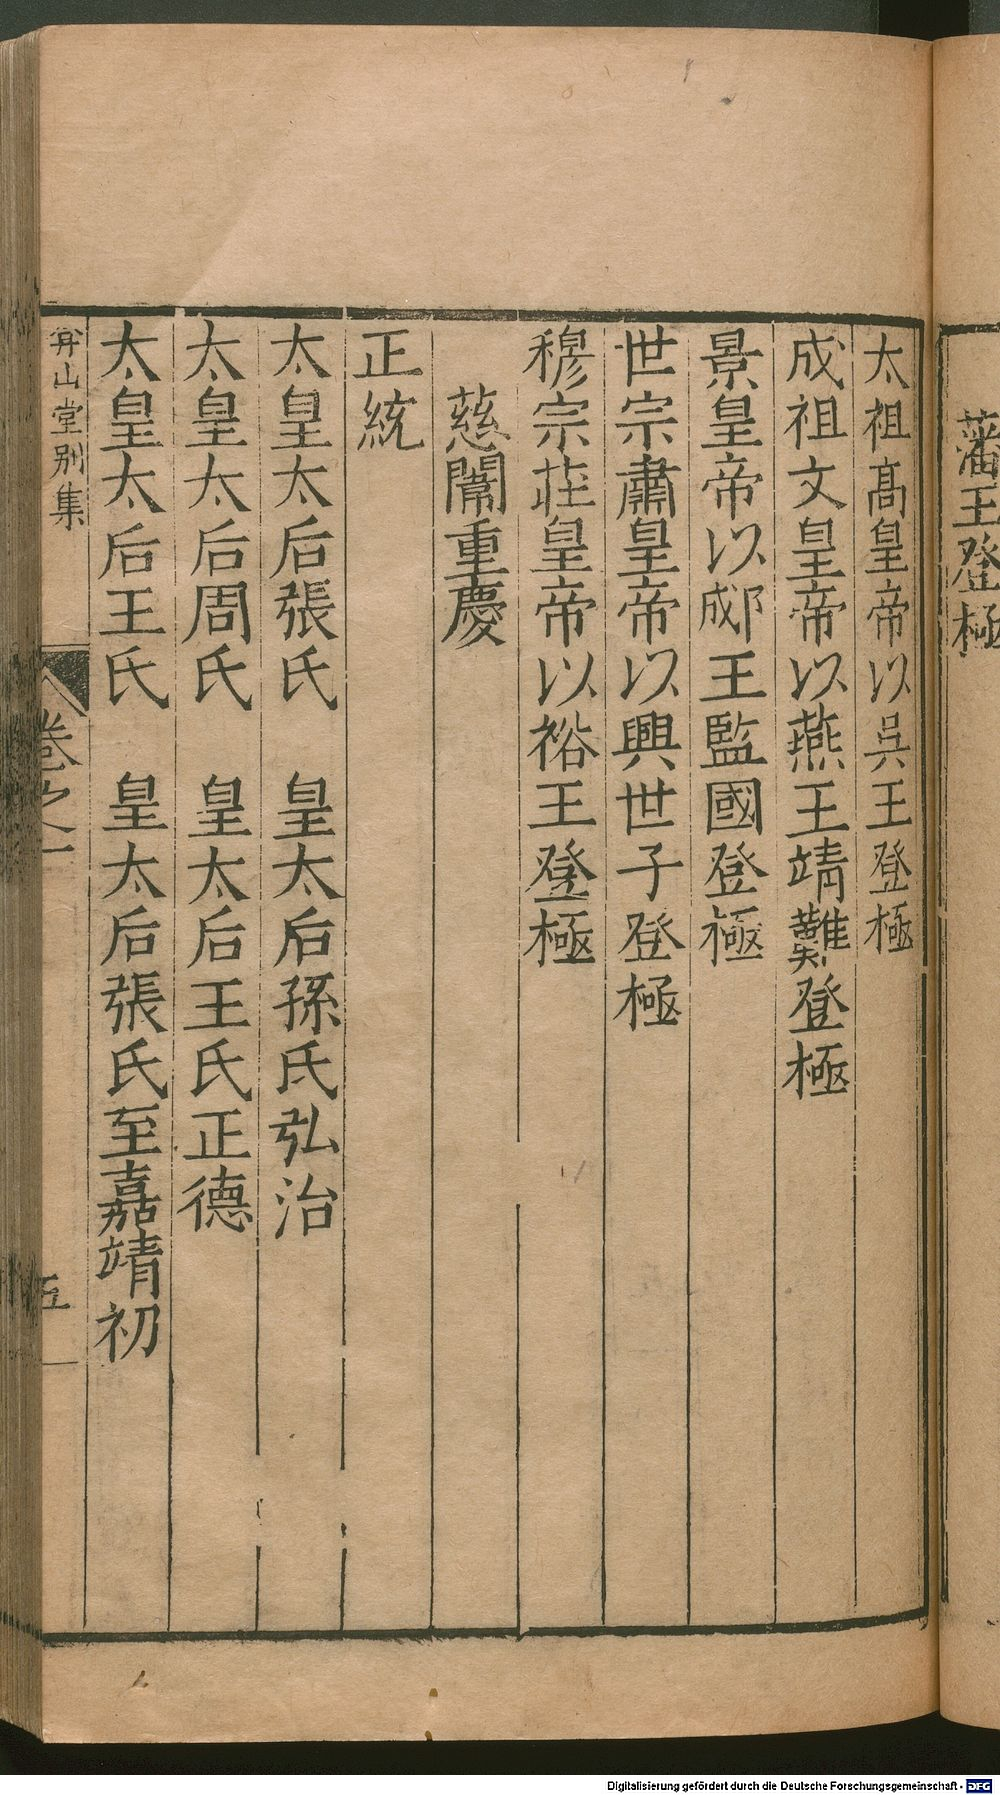 藩王登極
太祖髙皇帝以吳王登極
成祖文皇帝以燕王靖難登極
景皇帝以郕王監國登極
世宗肅皇帝以興世子登極
穆宗莊皇帝以裕王登極
慈闈重慶
正統
太皇太后張氏　皇太后孫氏弘治
太皇太后周氏　皇太后王氏正德
太皇太后王氏　皇太后張氏至嘉靖初
弇山堂别集
卷之一
五
Digitalisierung gefördert durch die Deutsche Forschungsgemeinschaft - DFG